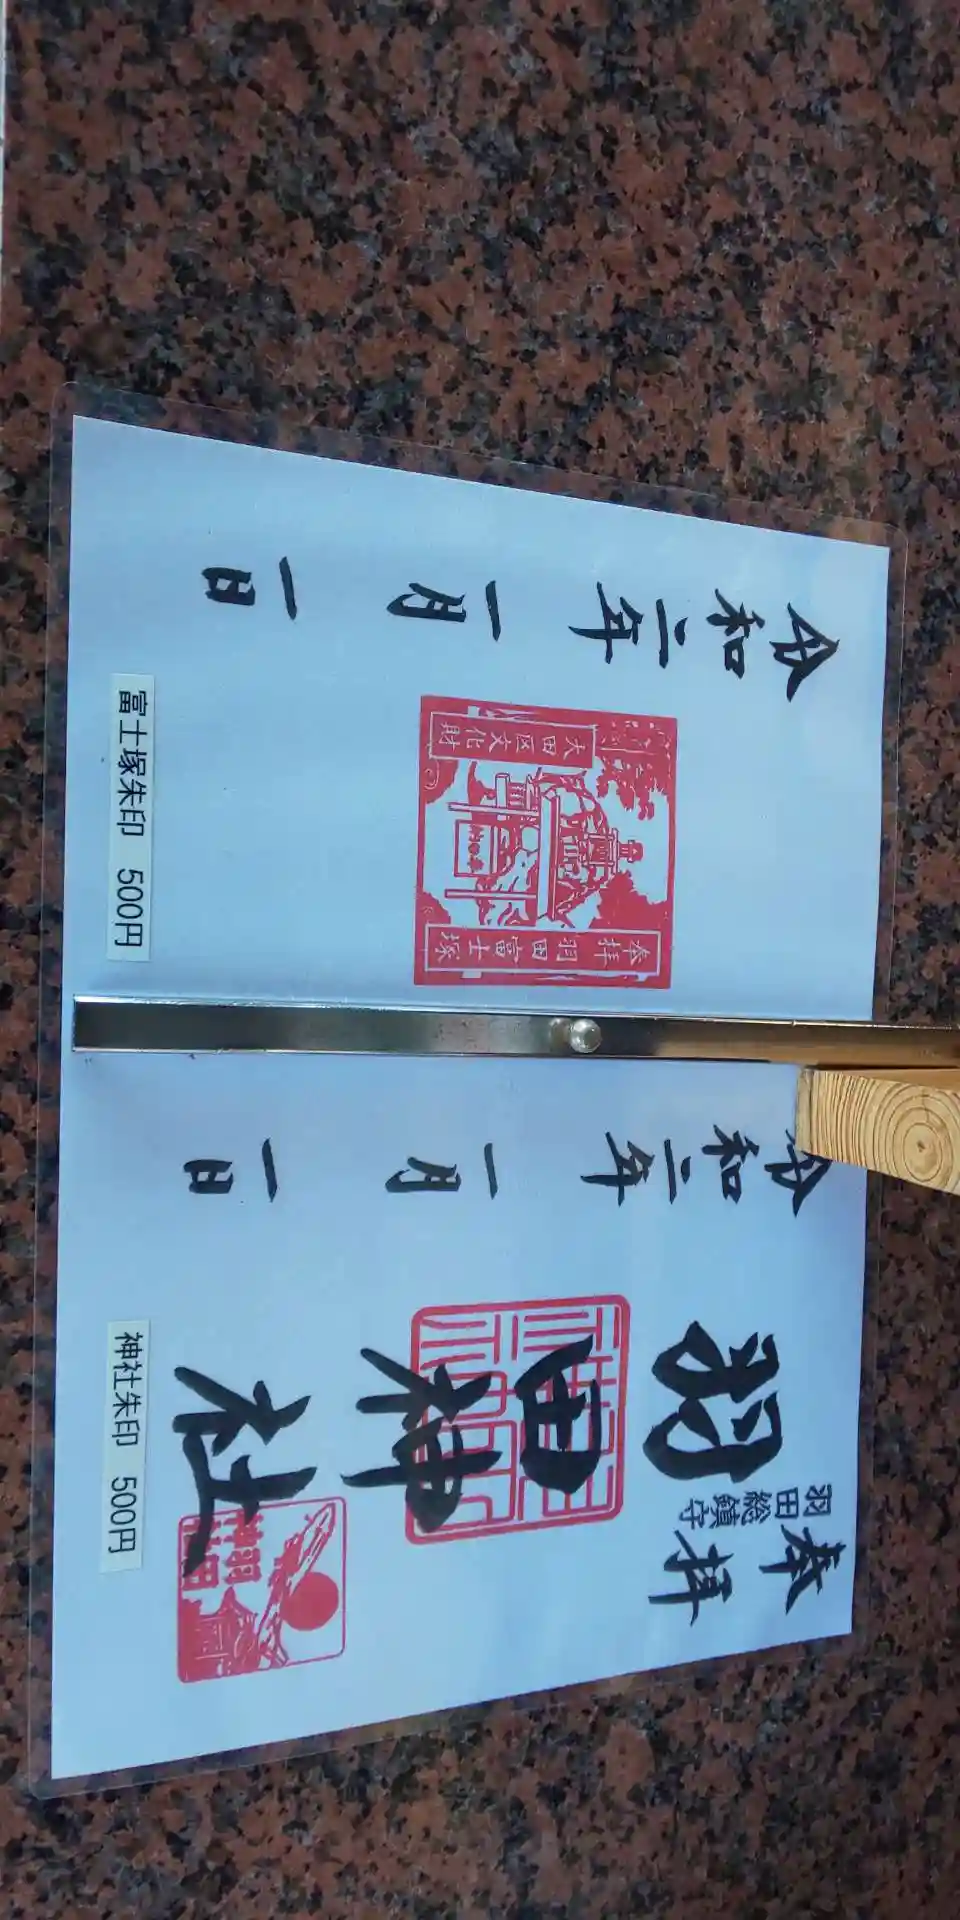 奉拝
羽田総鎮守
羽田神社
羽田
神社
令和二年一月一日
神社朱印 500円
奉拝 羽田富士塚
大田区文化財
令和二年一月一日
富士塚朱印 500円